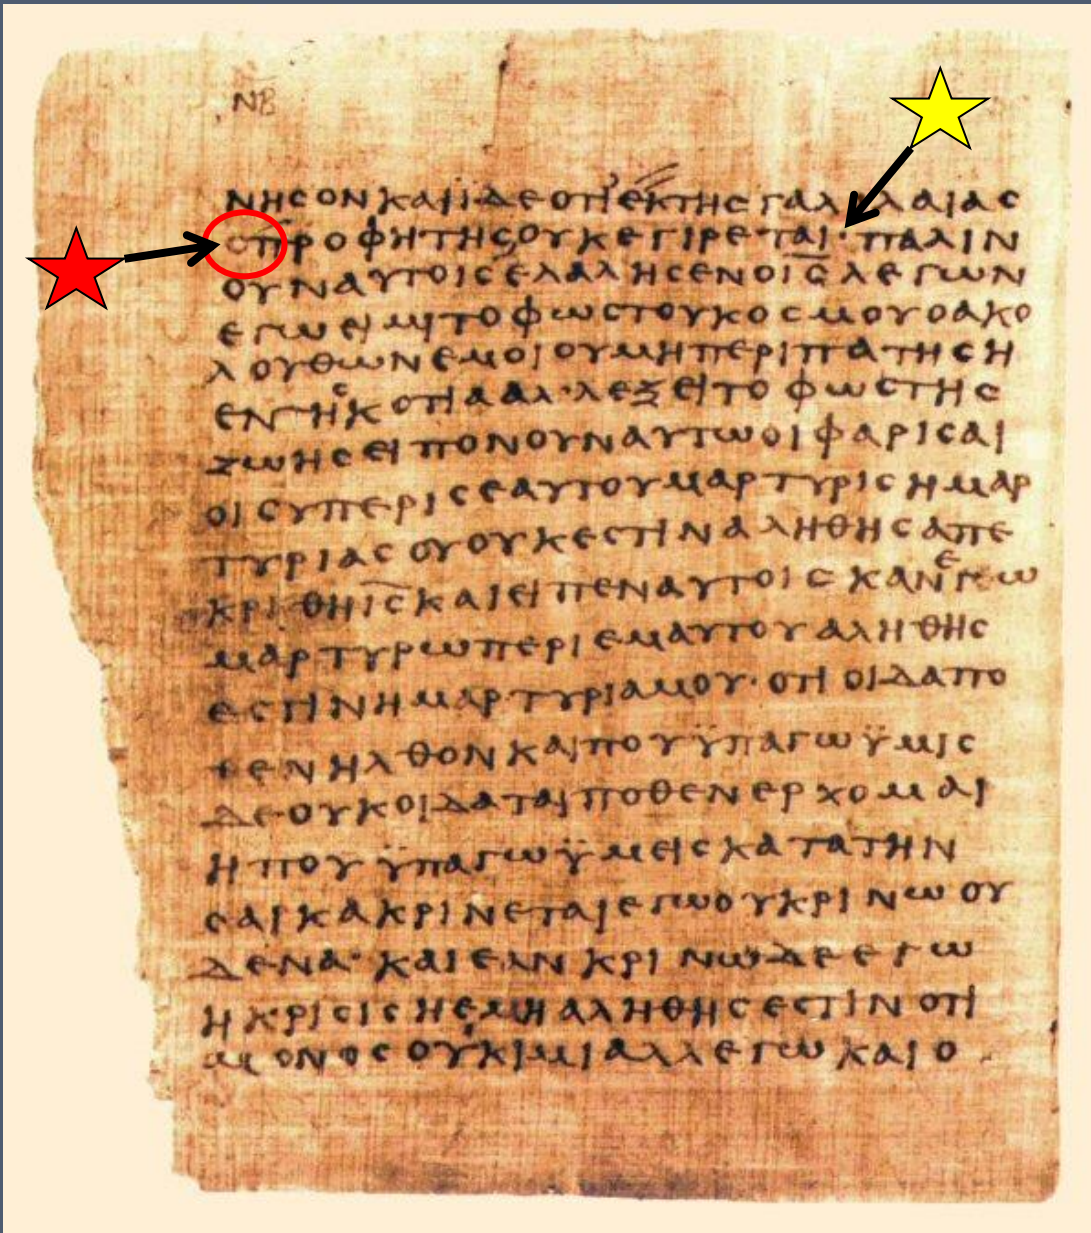 ΝΒ
ΝΗϹΟΝΚΑΙΪΔΕΟΤΙΕΚΤΗϹΓΑΛΙΛΑΙΑϹ
ΟΠΡΟΦΗΤΗϹΟΥΚΕΓΙΡΕΤΑΙ·ΠΑΛΙΝ
ΟΥΝΑΥΤΟΙϹΕΛΑΛΗϹΕΝΟΙ̅Ϲ̅ΛΕΓΩΝ
ΕΓΩΕΙΜΙΤΟΦΩϹΤΟΥΚΟϹΜΟΥΟΑΚΟ
ΛΟΥΘΩΝΕΜΟΙΟΥΜΗΠΕΡΙΠΑΤΗϹΗ
ΕΝΤΗϹΚΟΤΙΑΑΛΛ·ΛΕΞΕΙΤΟΦΩϹΤΗϹ
ΖΩΗϹΕΙΠΟΝΟΥΝΑΥΤΩΟΙΦΑΡΙϹΑΙ
ΟΙϹΥΠΕΡΙϹΕΑΥΤΟΥΜΑΡΤΥΡΙϹΗΜΑΡ
ΤΥΡΙΑϹΟΥΟΥΚΕϹΤΙΝΑΛΗΘΗϹΑΠΕ
ΚΡΙΘΗΙ̅Ϲ̅ΚΑΙΕΙΠΕΝΑΥΤΟΙϹΚΑΝΕΓΩ
ΜΑΡΤΥΡΩΠΕΡΙΕΜΑΥΤΟΥΑΛΗΘΗϹ
ΕϹΤΙΝΗΜΑΡΤΥΡΙΑΜΟΥ·ΟΤΙΟΙΔΑΠΟ
ΘΕΝΗΛΘΟΝΚΑΙΠΟΥΫΠΑΓΩΫΜΙϹ
ΔΕΟΥΚΟΙΔΑΤΑΙΠΟΘΕΝΕΡΧΟΜΑΙ
ΗΠΟΥΫΠΑΓΩΫΜΕΙϹΚΑΤΑΤΗΝ
ϹΑΡΚΑΚΡΙΝΕΤΑΙΕΓΩΟΥΚΡΙΝΩΟΥ
ΔΕΝΑ·ΚΑΙΕΑΝΚΡΙΝΩΔΕΕΓΩ
ΗΚΡΙϹΙϹΗΕΜΗΑΛΗΘΗϹΕϹΤΙΝΟΤΙ
ΜΟΝΟϹΟΥΚΙΜΙΑΛΛΕΓΩΚΑΙΟ